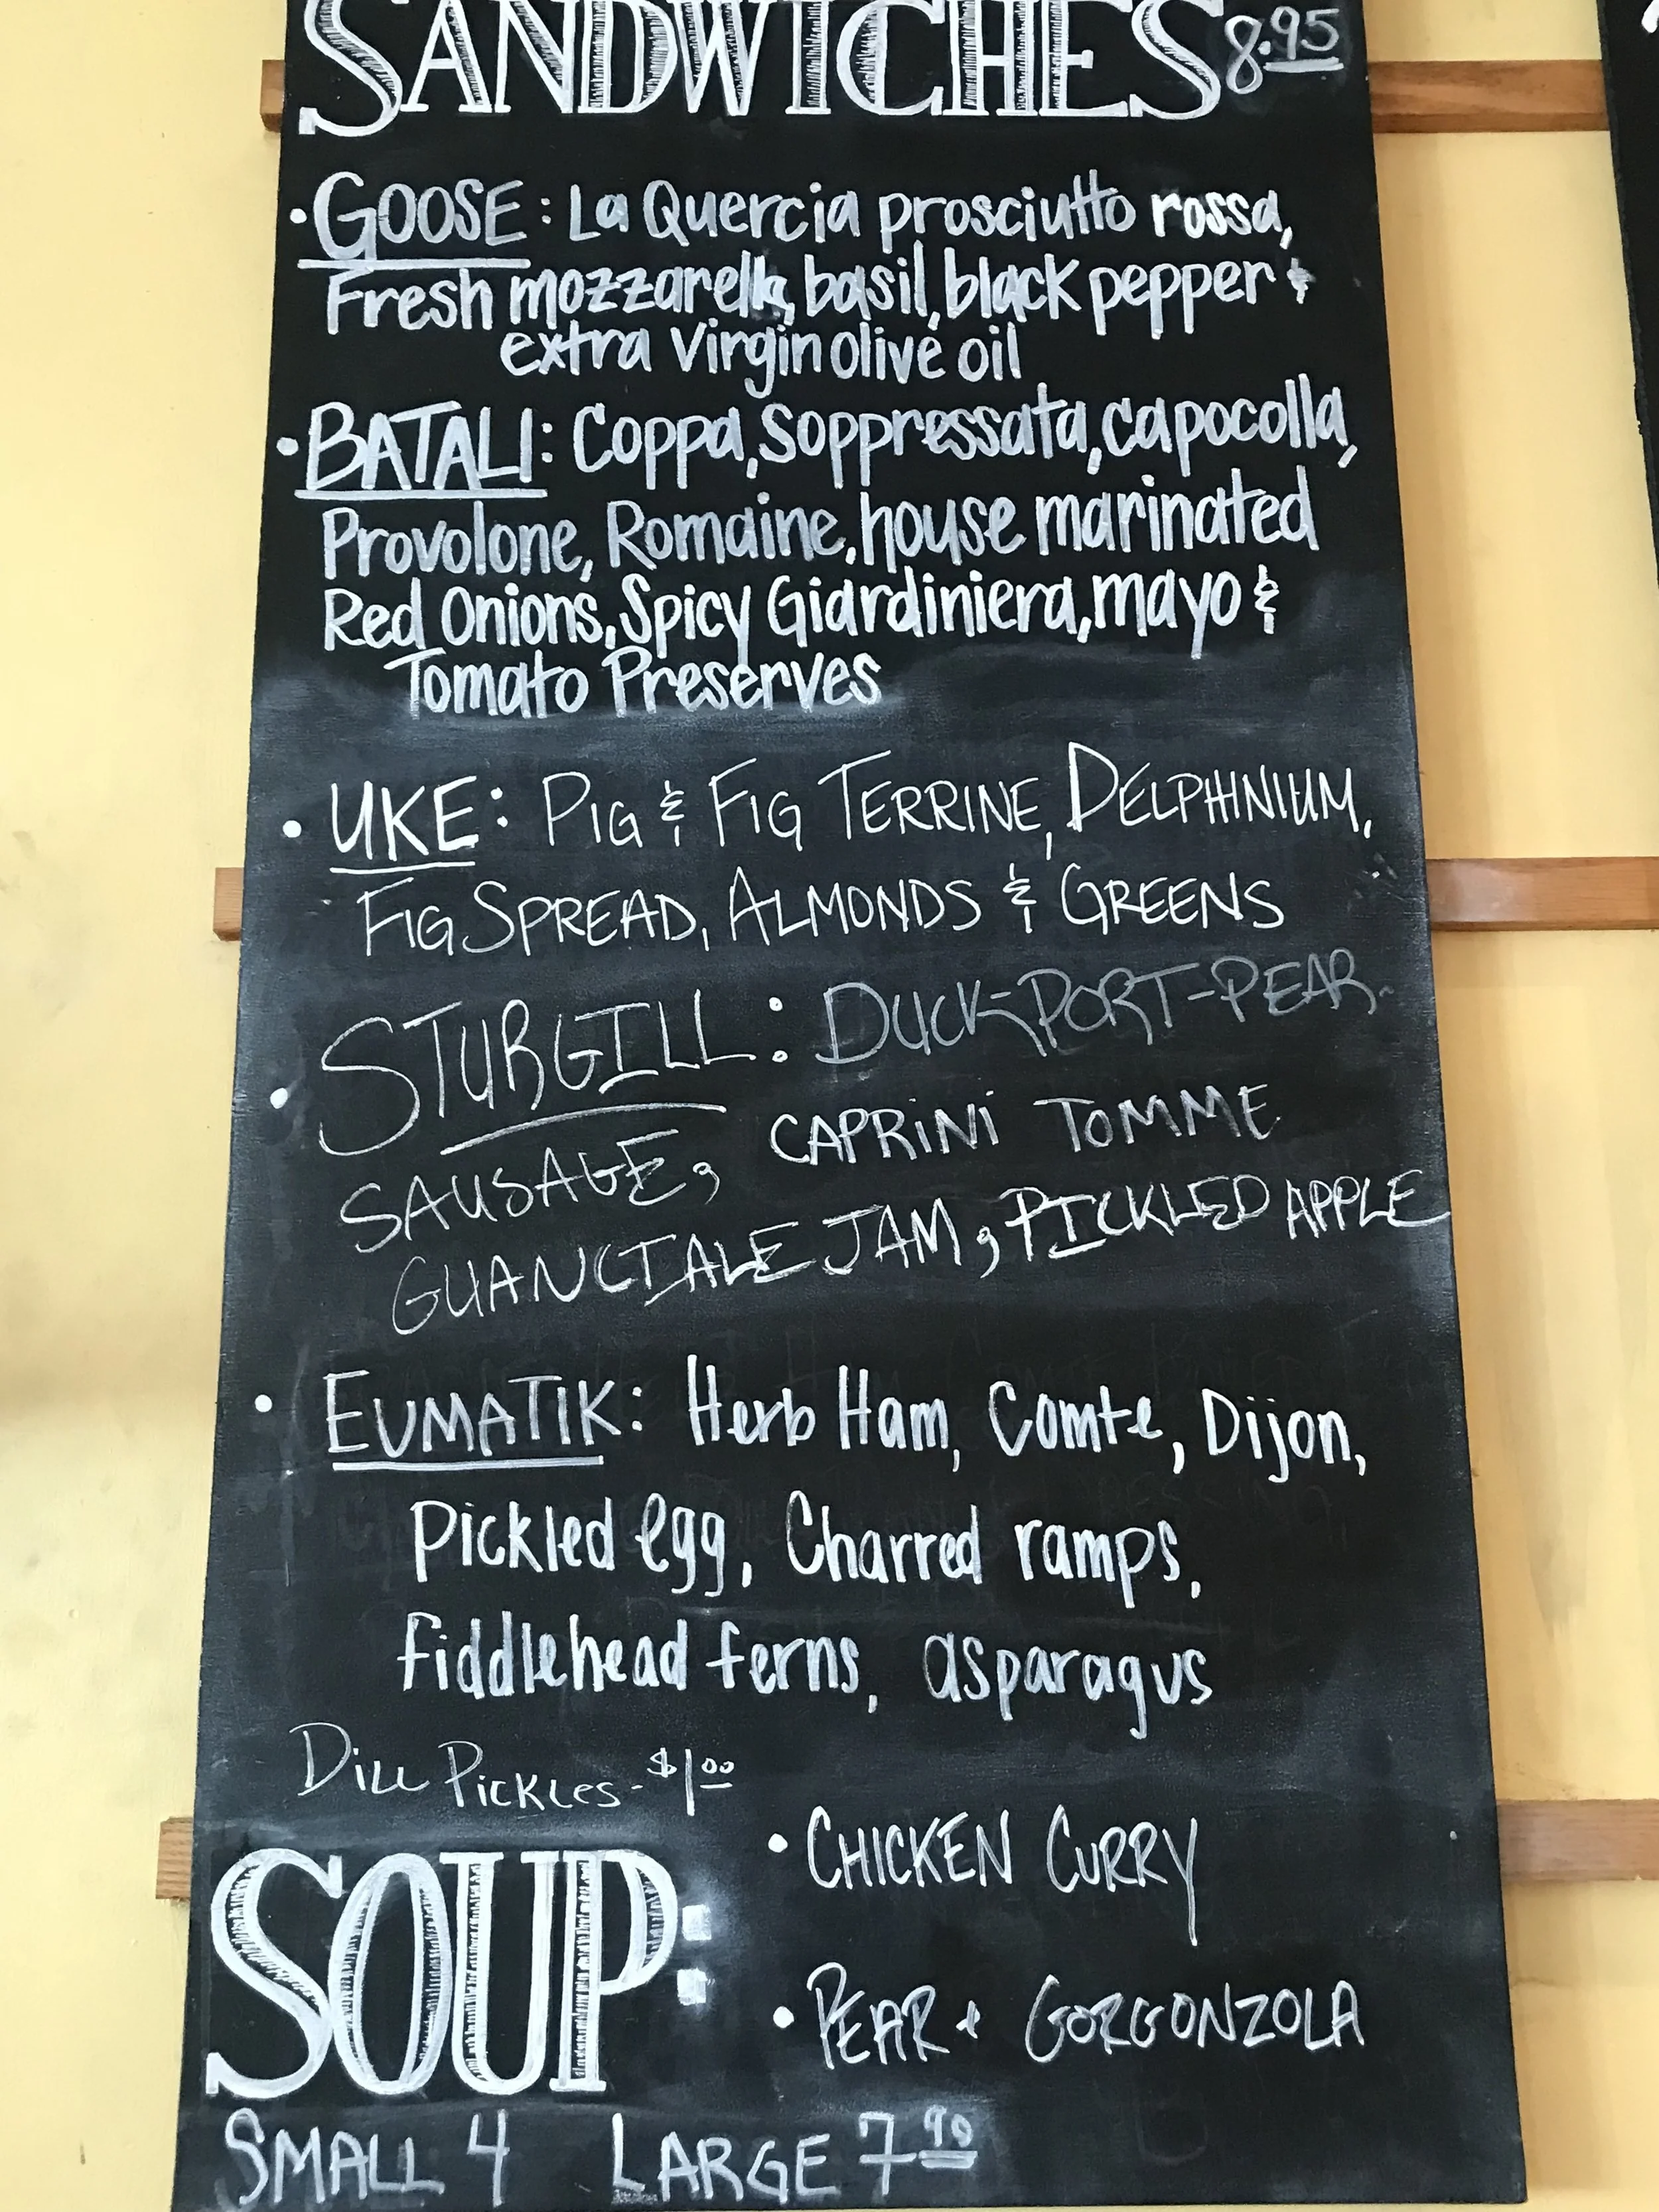 SANDWICHES 8.95
• GOOSE: La Quercia prosciutto rossa,
Fresh mozzarella, basil, black pepper &
extra virgin olive oil
• BATALI: Coppa, Soppressata, capocolla,
Provolone, Romaine, house marinated
Red Onions, Spicy Giardiniera, mayo &
Tomato Preserves
• UKE: PIG & FIG TERRINE, DELPHINIUM,
FIG SPREAD, ALMONDS & GREENS
• STURGILL: DUCK-PORT-PEAR-
SAUSAGE, CAPRINI TOMME
GUANCIALE JAM, PICKLED APPLE
• EUMATIK: Herb Ham, Comte, Dijon,
Pickled egg, Charred ramps,
fiddlehead ferns, asparagus
DILL PICKLES - $1.00
SOUP:
• CHICKEN CURRY
• PEAR + GORGONZOLA
SMALL 4 LARGE 7.90